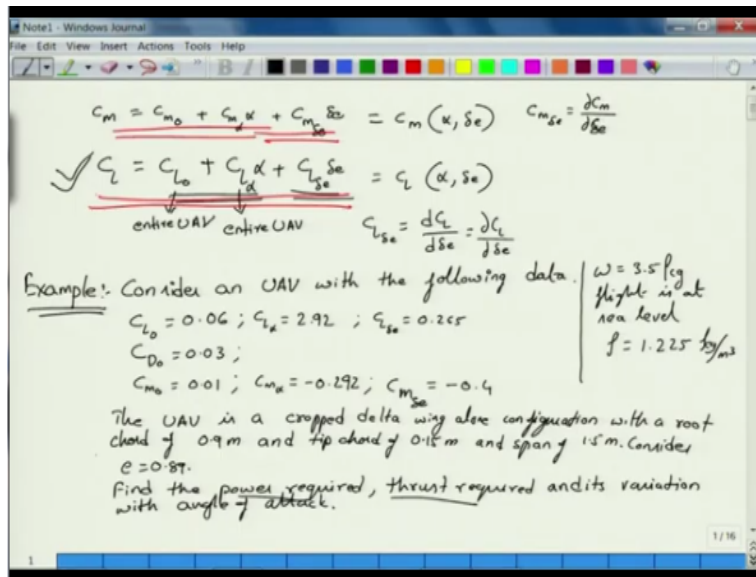 Note1 - Windows Journal
File Edit View Insert Actions Tools Help
B I
Cm = Cm₀ + Cmα α + Cmδe δe = Cm (α, δe) Cmδe = ∂Cm/∂δe
CL = CL₀ + CLα α + CLδe δe = CL (α, δe)
entire UAV entire UAV CLδe = dCL/dδe = ∂CL/∂δe
Example:- Consider an UAV with the following data.
CL₀ = 0.06 ; CLα = 2.92 ; CLδe = 0.265
CD₀ = 0.03 ;
Cm₀ = 0.01 ; Cmα = -0.292 ; Cmδe = -0.4
w = 3.5 kg
flight is at
sea level
ρ = 1.225 kg/m³
The UAV is a cropped delta wing alone configuation with a root
chord of 0.9 m and tip chord of 0.15 m and span of 1.5 m. Consider
e = 0.89.
Find the power required, thrust required and its variation
with angle of attack.
1 / 16
1